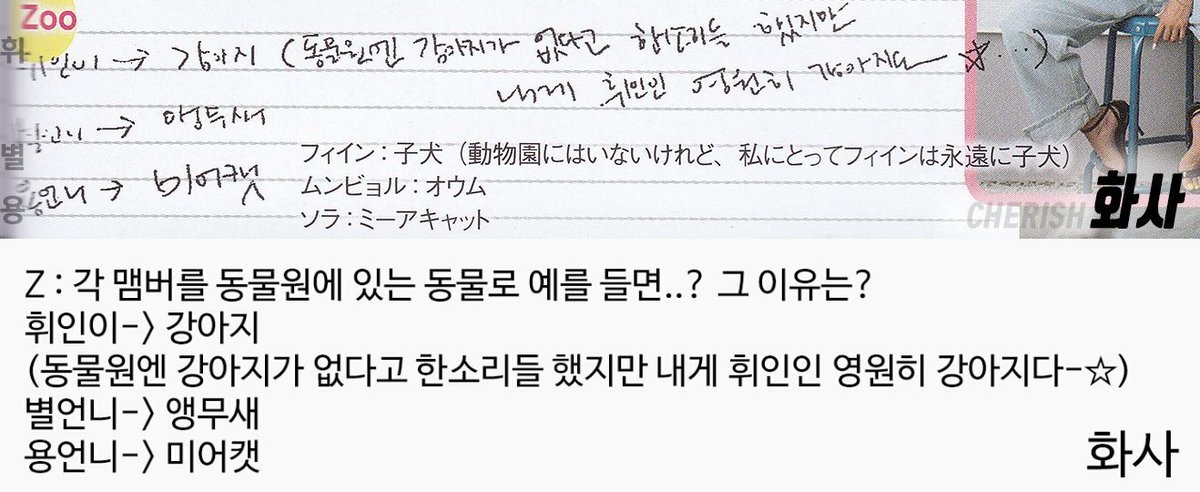 Zoo
휘인이 → 강아지 (동물원엔 강아지가 없다고 한소리들 했지만
내게 휘인인 영원히 강아지다-☆...)
별언니 → 앵무새
용언니 → 미어캣
휘
별
용
フィイン：子犬（動物園にはいないけれど、私にとってフィインは永遠に子犬）
ムンビョル：オウム
ソラ：ミーアキャット
CHERISH 화사
Z : 각 맴버를 동물원에 있는 동물로 예를 들면..? 그 이유는?
휘인이-> 강아지
(동물원엔 강아지가 없다고 한소리들 했지만 내게 휘인인 영원히 강아지다-☆)
별언니-> 앵무새
용언니-> 미어캣
화사